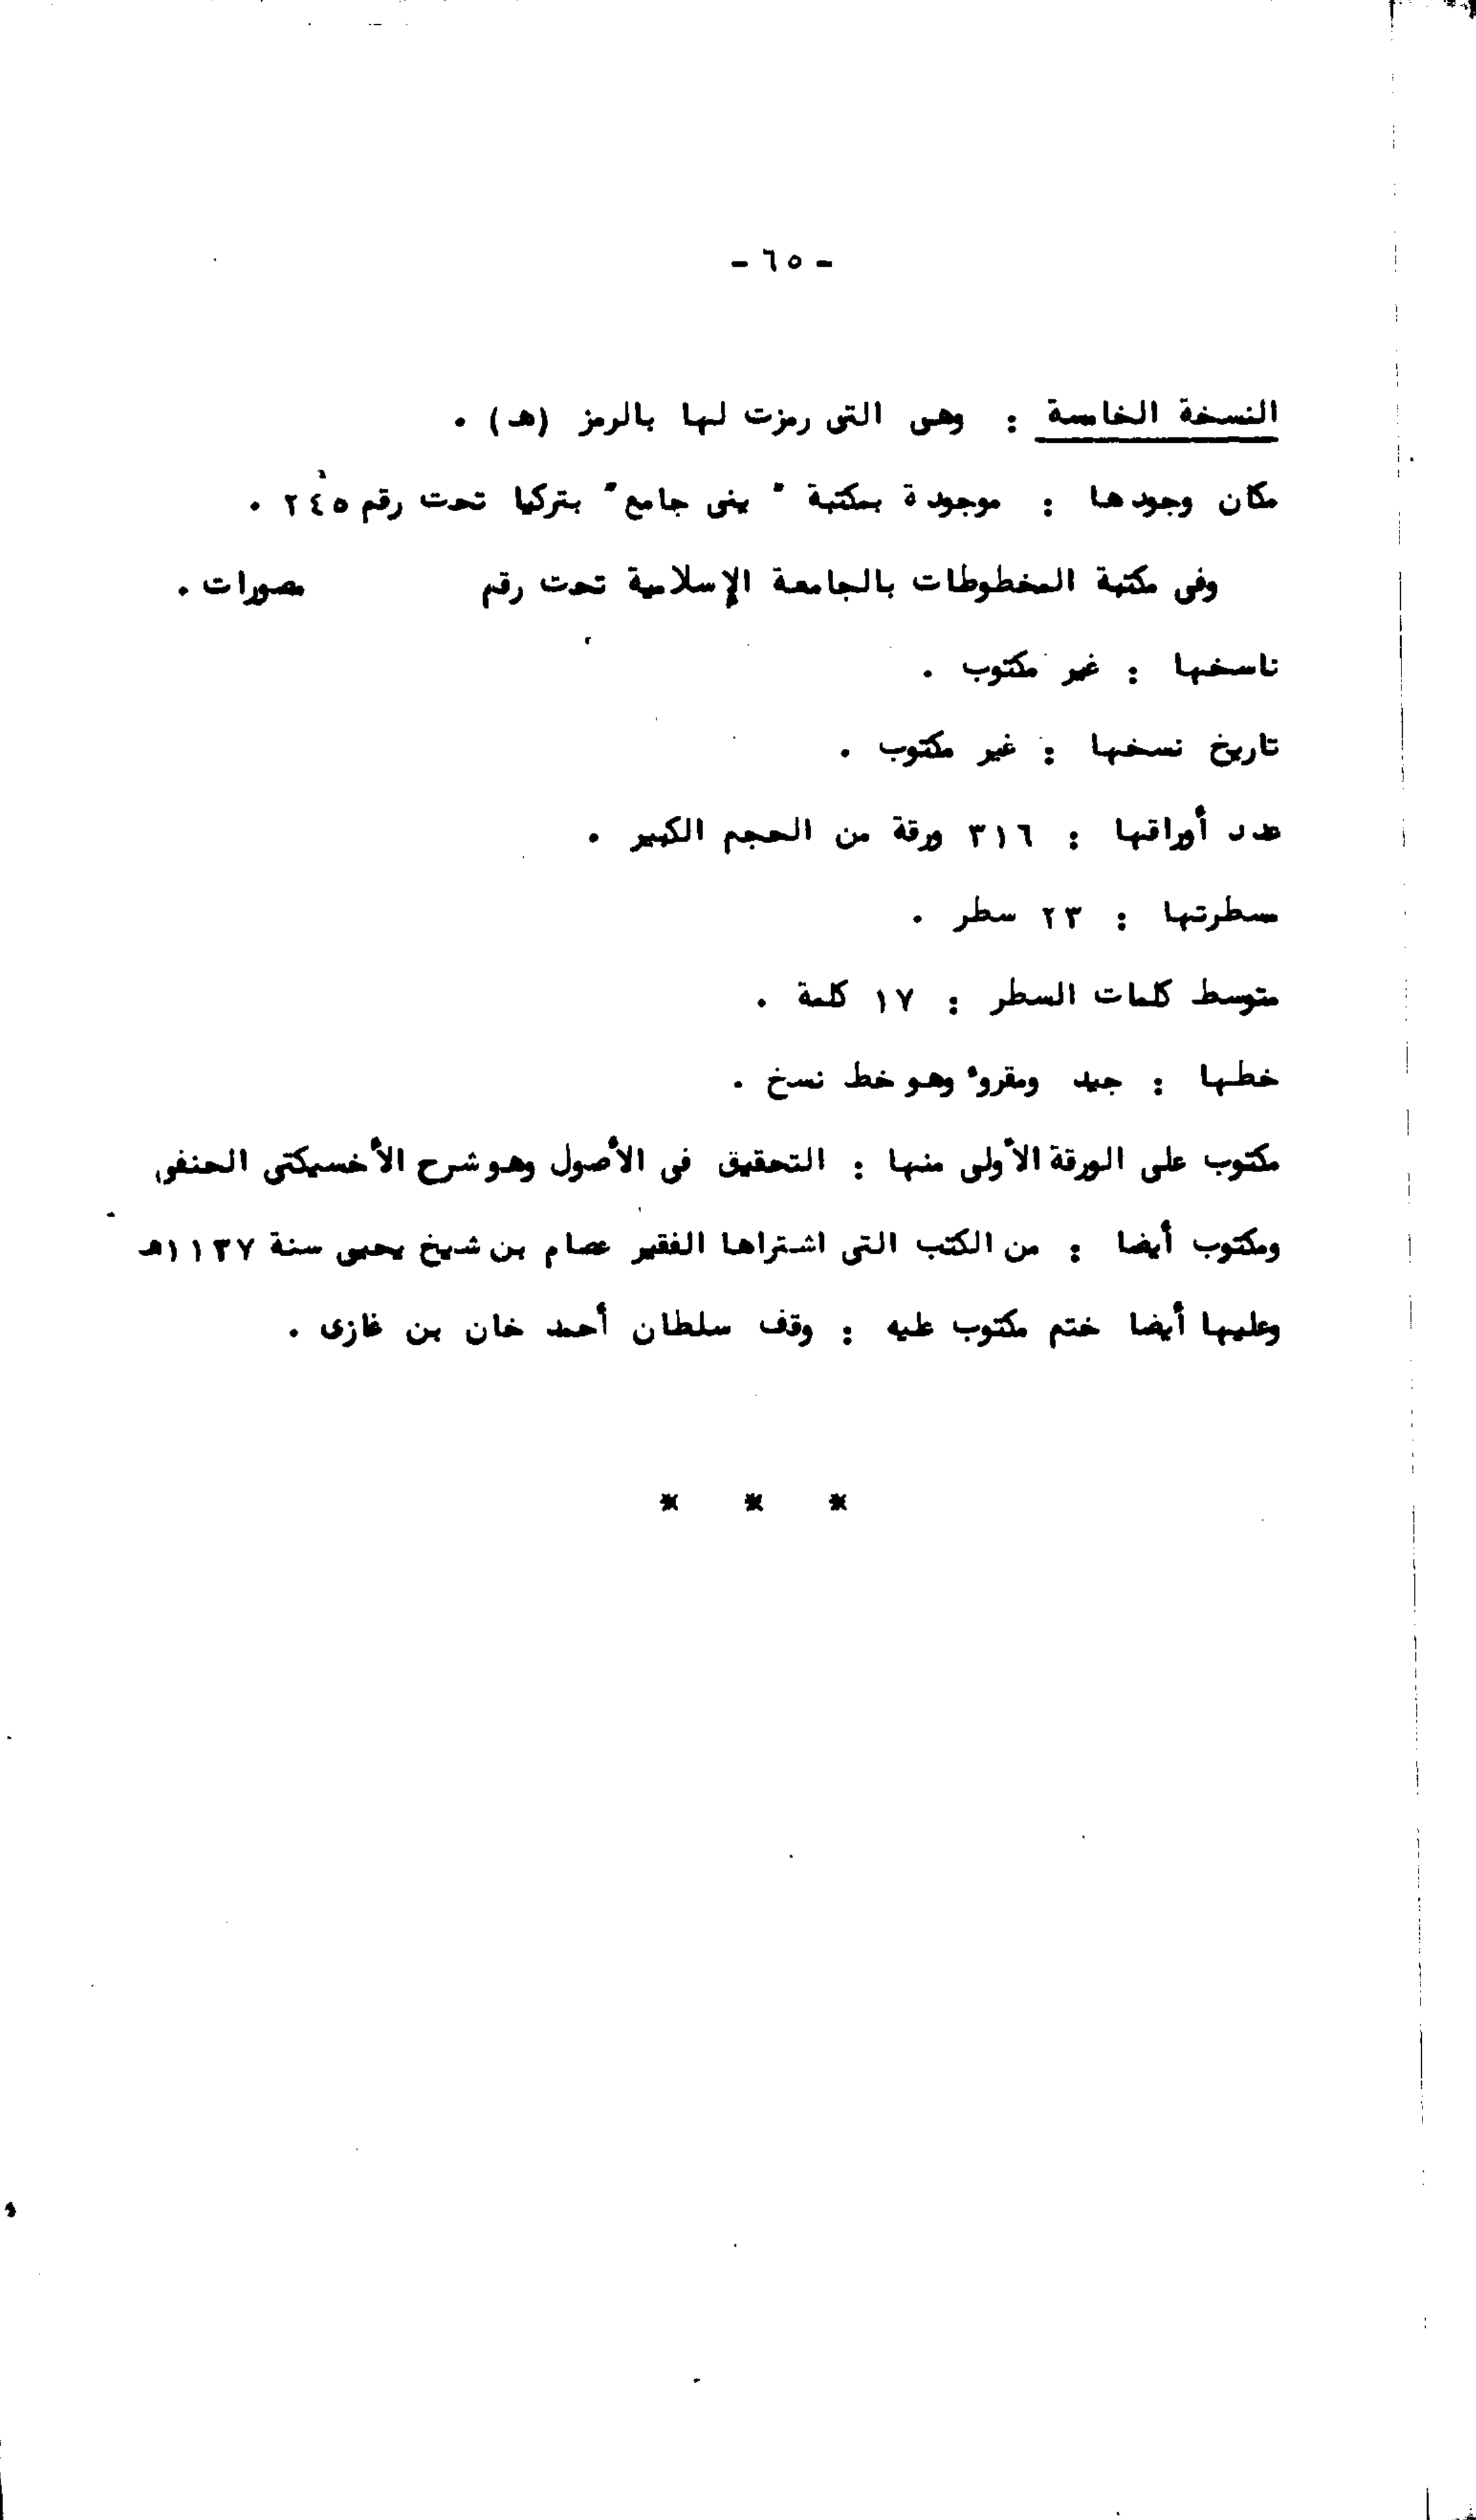 -٦٥-
النسخة الخامسة : وهى التى رمزت لها بالرمز (هـ) .
مكان وجودها : موجودة بمكتبة " ينى جامع" بتركيا تحت رقم ٢٤٥ .
وفى مكتبة المخطوطات بالجامعة الإسلامية تحت رقم مصورات .
ناسخها : غير مكتوب .
تاريخ نسخها : غير مكتوب .
عدد أوراقها : ٣١٦ ورقة من الحجم الكبير .
مسطرتها : ٢٣ سطر .
متوسط كلمات السطر : ١٧ كلمة .
خطها : جيد ومقروء وهو خط نسخ .
مكتوب على الورقة الأولى منها : التحقيق فى الأصول وهو شرح الأخسيكتى الحنفى
ومكتوب أيضا : من الكتب التى اشتراها الفقير عصام بن شيخ يحيى سنة ١١٣٧هـ
وعليها أيضا ختم مكتوب عليه : وقف سلطان أحمد خان بن غازى .
* * *